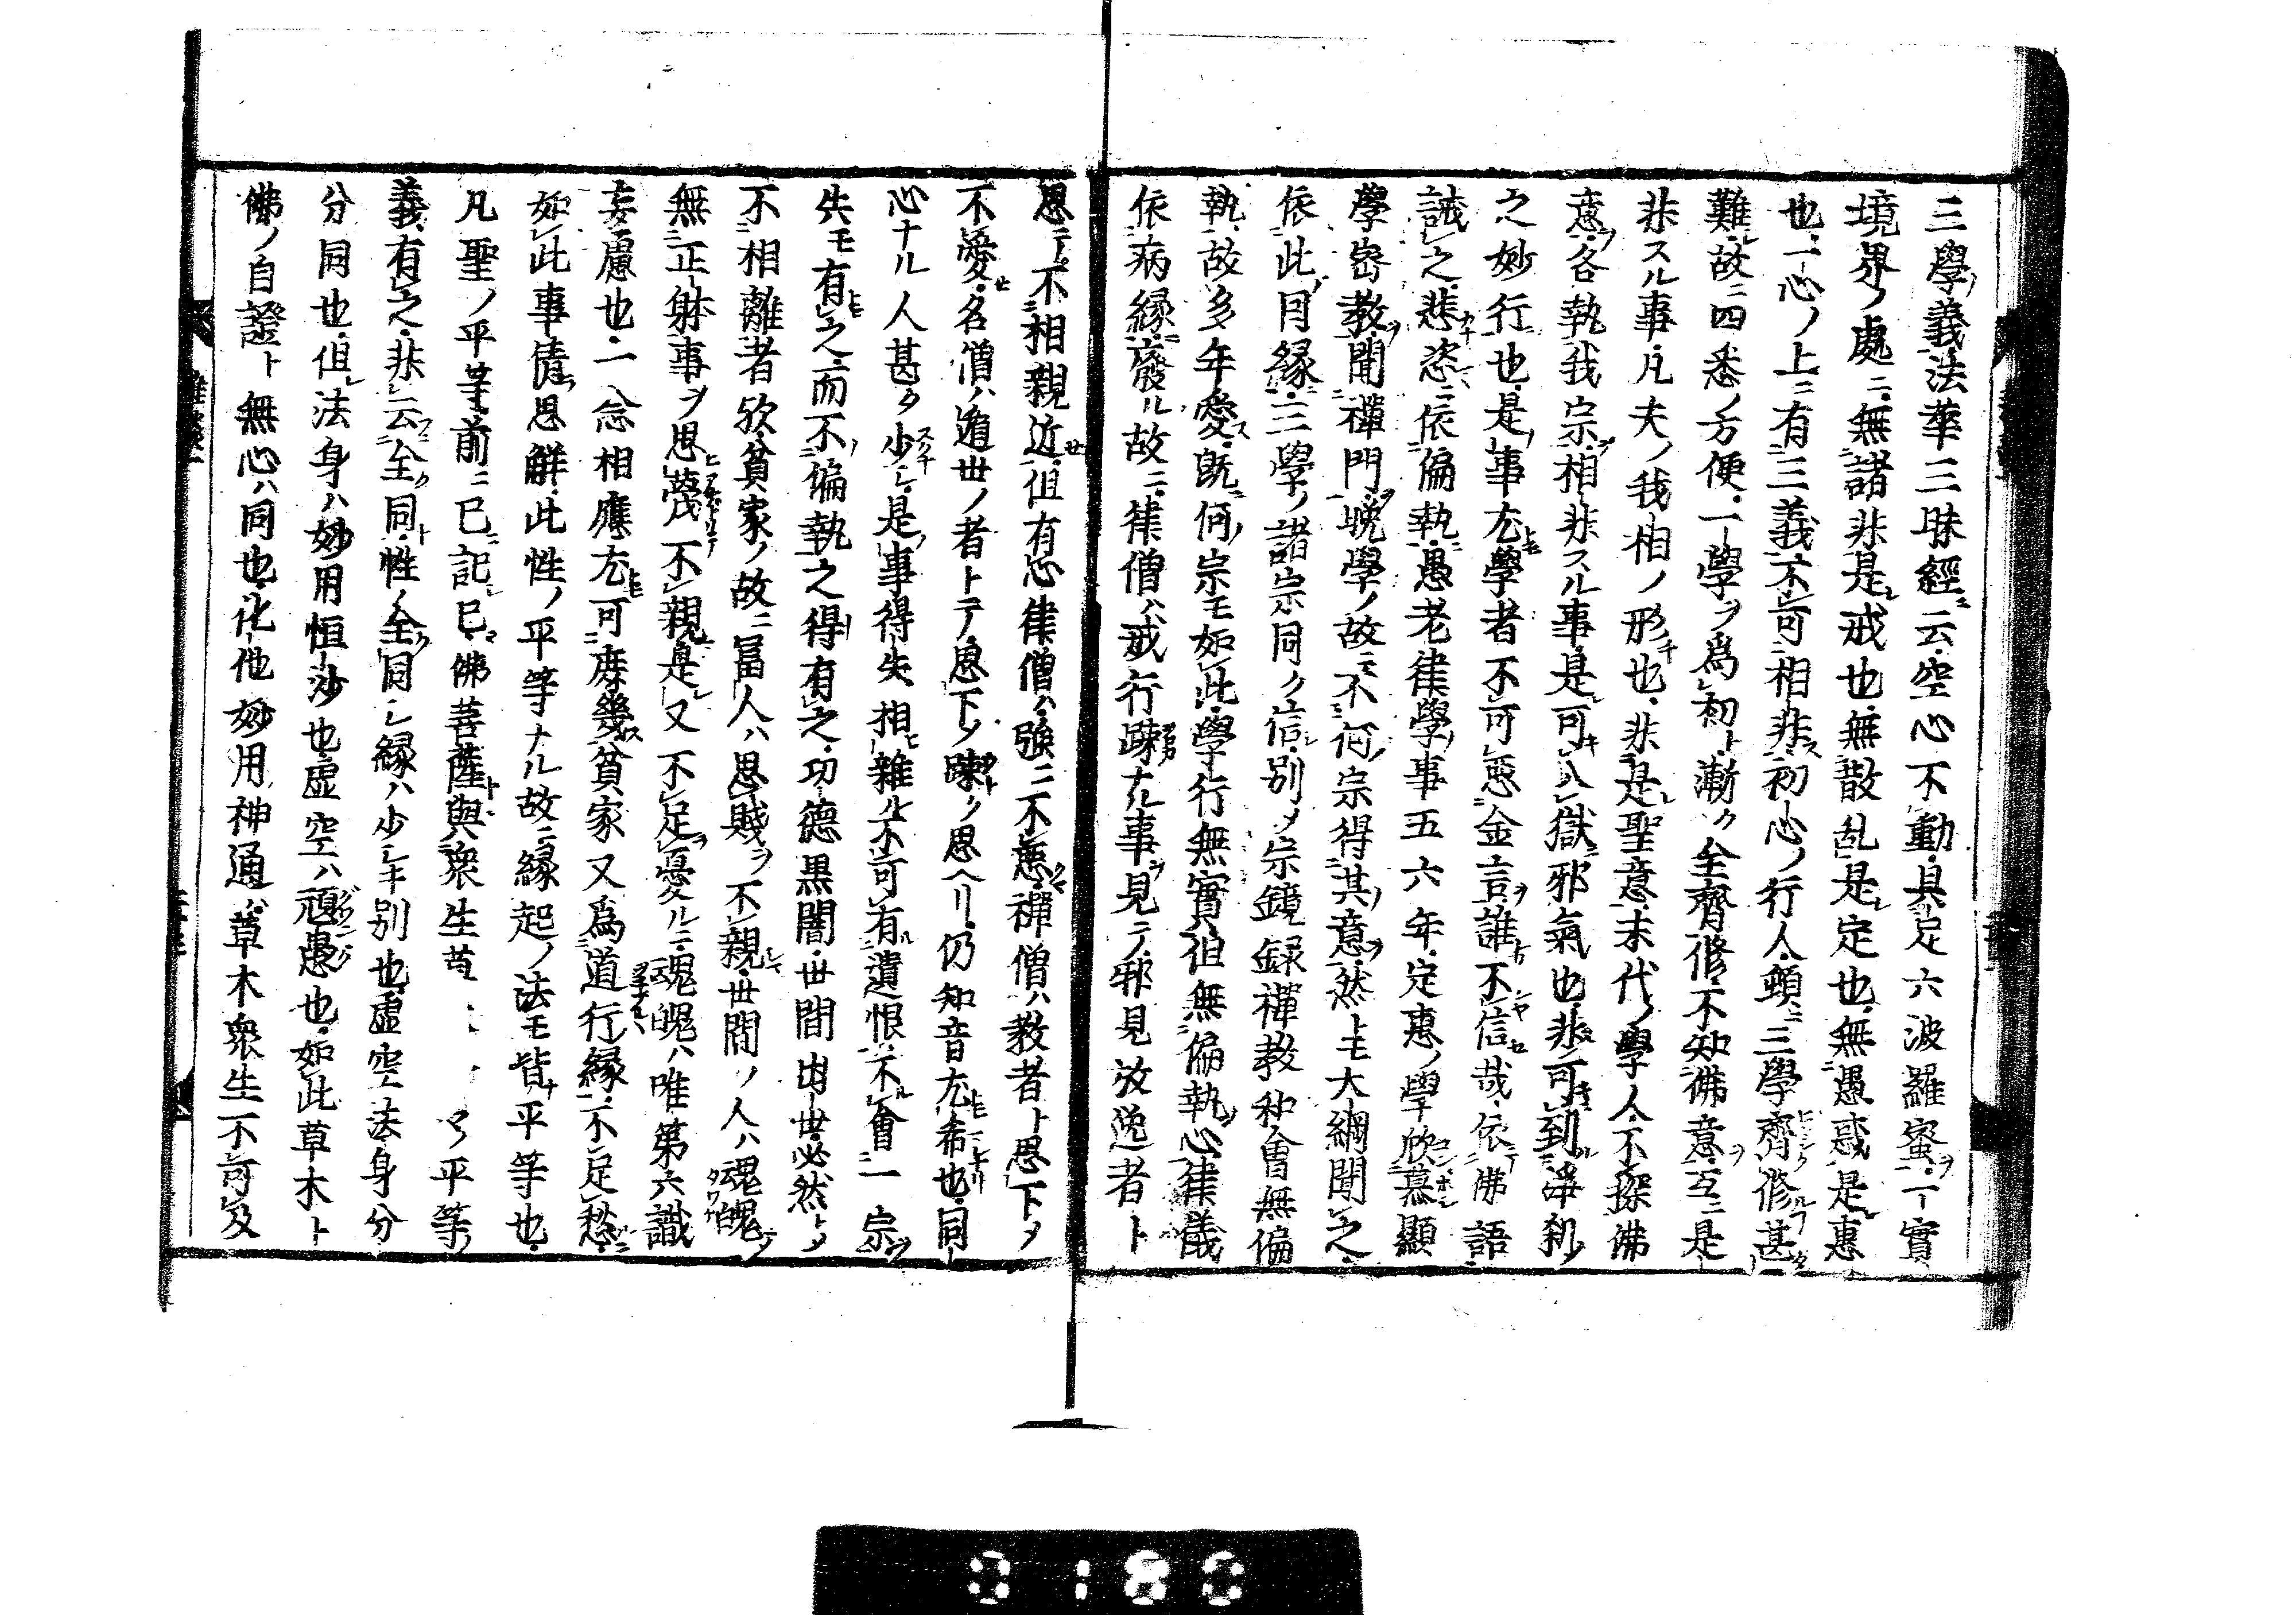 三學ノ義法華三昧經ニ云空心不動具足六波羅蜜ヲ一實
境界ノ處ニ無諸非是戒也無散乱是定也無愚惑是惠
也一心ノ上ニ有三義不可相非ス初心ノ行人頓ニ三學齊修ルフ甚タ
難故ニ四悉ノ方便一學ヲ爲初ト漸ク全齊修不知佛意ヲ互ニ是
非スル事凡夫ノ我相ノ形チ也非是聖意末代ノ學人不探佛
意ヲ各執我宗ヲ相非スル事是可キ入獄邪氣也非可到淨刹ノ
之妙行ニ也是ノ事尤モ學者不可惡金言ヲ誰カ不信セ哉依テ佛語
誡之悲キ恣ニ依偏執ニ愚老律學ノ事五六年定惠ノ學欣慕顯
學密教ヲ聞禪門ヲ晩學ノ故ニ不何ノ宗得其ノ意ヲ然トモ大綱聞之
依此ノ因縁ニ三學ノ諸宗同ク信シ別メ宗鏡録禪教和會無偏
執故多年愛ス既ニ何ノ宗モ如此學行無實但無偏執ノ心律儀
依病縁ニ廢ル故ニ律僧ハ戒行踈ナル事ヲ見テノ邪見放逸者ト
思テ不相親近セ但有心律僧ハ強ニ不惡マ禪僧ハ教者ト思下メ
不愛セ名僧ハ遁世ノ者トテ思下ノ踈ク思ヘリ仍知音尤モ希也同
心ナル人甚タ少シ是ノ事得失相雜ル不可有遺恨不會一宗ヲ
失モ有之而不偏執之得有之功德黒闇世間出世必然トメ
不相離者欤貧家ノ故ニ冨人ハ思賤ヲ不親世間ノ人ハ魂魄テ
無正躰事ヲ思蔑テ不親是又不足憂ルニ魂魄ハ唯第六識
妄慮也一念相應尤モ可庶幾ス貧家又爲道行縁不足愁
如此事倩ラ思解此性ノ平等ナル故ニ縁起ノ法モ皆ナ平等也
凡聖ノ平等前ニ已ニ記已ヌ佛菩薩與衆生平等ノ
義有之非云ニ全ク同ト性ノ全ク同シ縁ハ少シキ別也虚空法身分
分同也但法身ハ妙用恒沙也虚空ハ頑愚也如此草木ト
佛ノ自證ト無心ハ同也化他妙用神通ハ草木衆生不可及